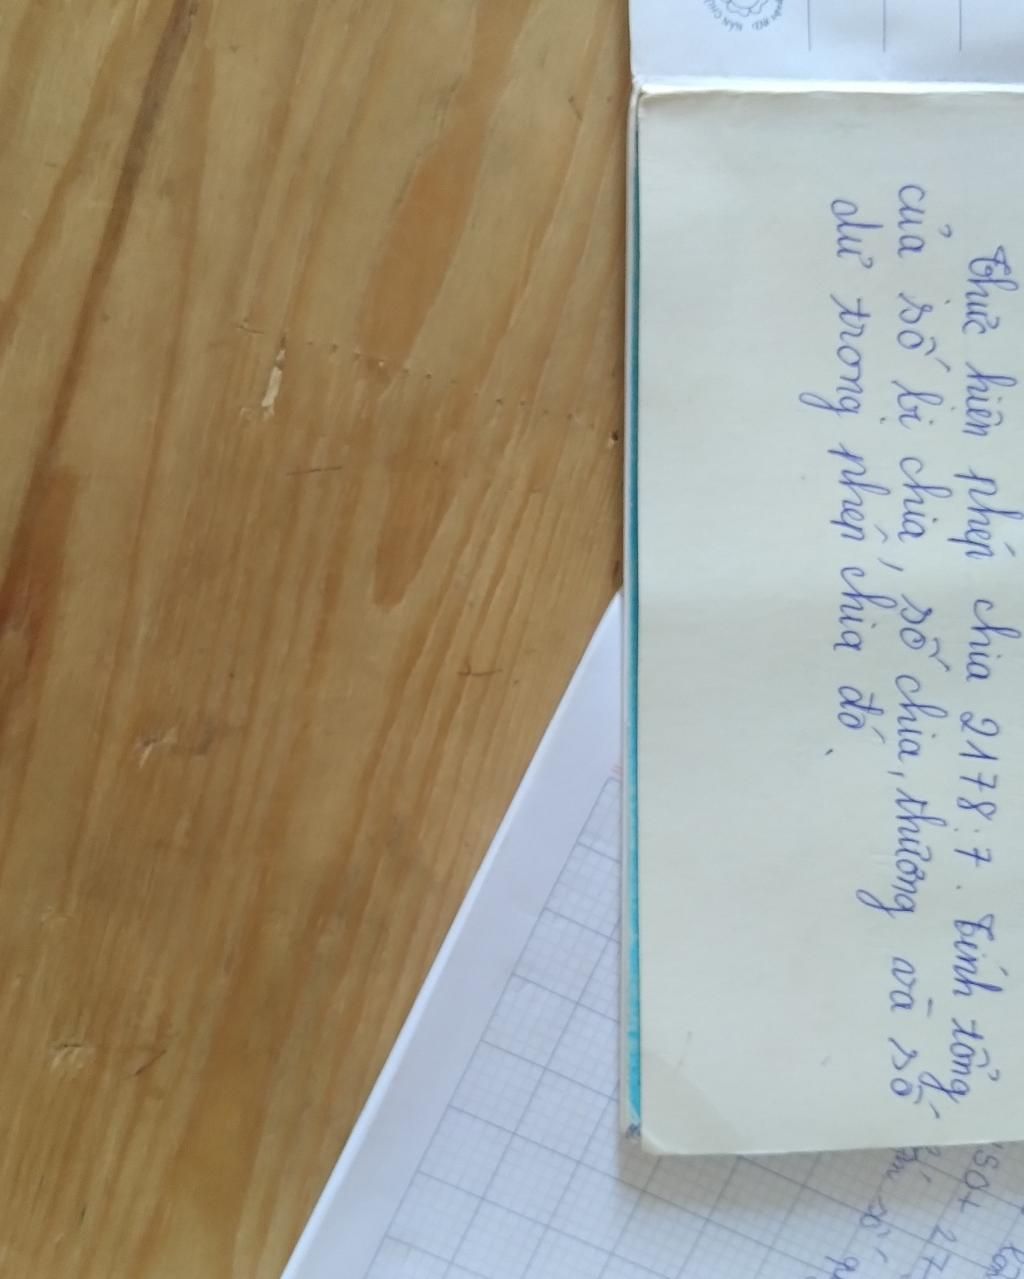 Thực hiện phép chia 2178 : 7. Tính tổng
của số bị chia, số chia, thương và số
dư trong phép chia đó.